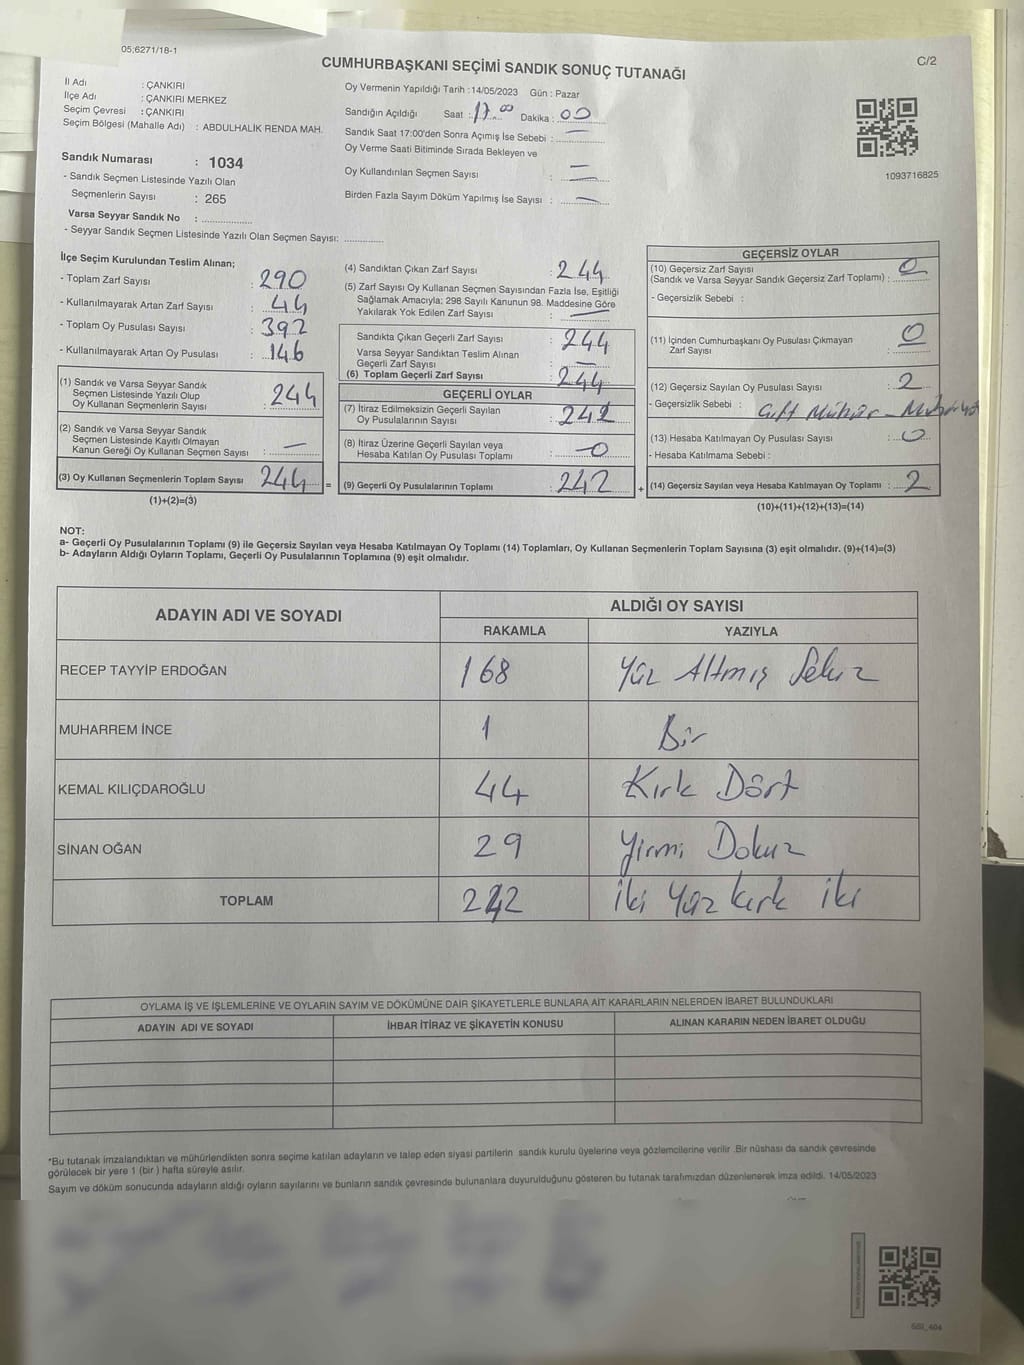 05;6271/18-1
C/2
CUMHURBAŞKANI SEÇİMİ SANDIK SONUÇ TUTANAĞI
İl Adı : ÇANKIRI
İlçe Adı : ÇANKIRI MERKEZ
Seçim Çevresi : ÇANKIRI
Seçim Bölgesi (Mahalle Adı) : ABDULHALİK RENDA MAH.
Sandık Numarası : 1034
- Sandık Seçmen Listesinde Yazılı Olan
Seçmenlerin Sayısı : 265
Varsa Seyyar Sandık No : ................
- Seyyar Sandık Seçmen Listesinde Yazılı Olan Seçmen Sayısı: ............
Oy Vermenin Yapıldığı Tarih :14/05/2023 Gün : Pazar
Sandığın Açıldığı Saat : 17.00 Dakika : 00
Sandık Saat 17:00'den Sonra Açımış İse Sebebi : —
Oy Verme Saati Bitiminde Sırada Bekleyen ve
Oy Kullandırılan Seçmen Sayısı : —
Birden Fazla Sayım Döküm Yapılmış İse Sayısı : —
1093716825
İlçe Seçim Kurulundan Teslim Alınan;
- Toplam Zarf Sayısı : 290
- Kullanılmayarak Artan Zarf Sayısı : 44
- Toplam Oy Pusulası Sayısı : 392
- Kullanılmayarak Artan Oy Pusulası : 146
(1) Sandık ve Varsa Seyyar Sandık
Seçmen Listesinde Yazılı Olup
Oy Kullanan Seçmenlerin Sayısı : 244
(2) Sandık ve Varsa Seyyar Sandık
Seçmen Listesinde Kayıtlı Olmayan
Kanun Gereği Oy Kullanan Seçmen Sayısı : —
(3) Oy Kullanan Seçmenlerin Toplam Sayısı 244 =
(1)+(2)=(3)
(4) Sandıktan Çıkan Zarf Sayısı : 244
(5) Zarf Sayısı Oy Kullanan Seçmen Sayısından Fazla İse, Eşitliği
Sağlamak Amacıyla; 298 Sayılı Kanunun 98. Maddesine Göre
Yakılarak Yok Edilen Zarf Sayısı : —
Sandıkta Çıkan Geçerli Zarf Sayısı : 244
Varsa Seyyar Sandıktan Teslim Alınan
Geçerli Zarf Sayısı : —
(6) Toplam Geçerli Zarf Sayısı : 244
GEÇERLİ OYLAR
(7) İtiraz Edilmeksizin Geçerli Sayılan
Oy Pusulalarının Sayısı : 242
(8) İtiraz Üzerine Geçerli Sayılan veya
Hesaba Katılan Oy Pusulası Toplamı : 0
(9) Geçerli Oy Pusulalarının Toplamı : 242 +
GEÇERSİZ OYLAR
(10) Geçersiz Zarf Sayısı
(Sandık ve Varsa Seyyar Sandık Geçersiz Zarf Toplamı) : 0
- Geçersizlik Sebebi :
(11) İçinden Cumhurbaşkanı Oy Pusulası Çıkmayan
Zarf Sayısı : 0
(12) Geçersiz Sayılan Oy Pusulası Sayısı : 2
- Geçersizlik Sebebi : Çift Mühür -
(13) Hesaba Katılmayan Oy Pusulası Sayısı : 0
- Hesaba Katılmama Sebebi :
(14) Geçersiz Sayılan veya Hesaba Katılmayan Oy Toplamı : 2
(10)+(11)+(12)+(13)=(14)
NOT:
a- Geçerli Oy Pusulalarının Toplamı (9) ile Geçersiz Sayılan veya Hesaba Katılmayan Oy Toplamı (14) Toplamları, Oy Kullanan Seçmenlerin Toplam Sayısına (3) eşit olmalıdır. (9)+(14)=(3)
b- Adayların Aldığı Oyların Toplamı, Geçerli Oy Pusulalarının Toplamına (9) eşit olmalıdır.
ADAYIN ADI VE SOYADI ALDIĞI OY SAYISI
RAKAMLA YAZIYLA
RECEP TAYYİP ERDOĞAN 168 Yüz Altmış Sekiz
MUHARREM İNCE 1 Bir
KEMAL KILIÇDAROĞLU 44 Kırk Dört
SİNAN OĞAN 29 Yirmi Dokuz
TOPLAM 242 İki Yüz kırk iki
OYLAMA İŞ VE İŞLEMLERİNE VE OYLARIN SAYIM VE DÖKÜMÜNE DAİR ŞİKAYETLERLE BUNLARA AİT KARARLARIN NELERDEN İBARET BULUNDUKLARI
ADAYIN ADI VE SOYADI İHBAR İTİRAZ VE ŞİKAYETİN KONUSU ALINAN KARARIN NEDEN İBARET OLDUĞU
*Bu tutanak imzalandıktan ve mühürlendikten sonra seçime katılan adayların ve talep eden siyasi partilerin sandık kurulu üyelerine veya gözlemcilerine verilir .Bir nüshası da sandık çevresinde
görülecek bir yere 1 (bir ) hafta süreyle asılır.
Sayım ve döküm sonucunda adayların aldığı oyların sayılarını ve bunların sandık çevresinde bulunanlara duyurulduğunu gösteren bu tutanak tarafımızdan düzenlenerek imza edildi. 14/05/2023